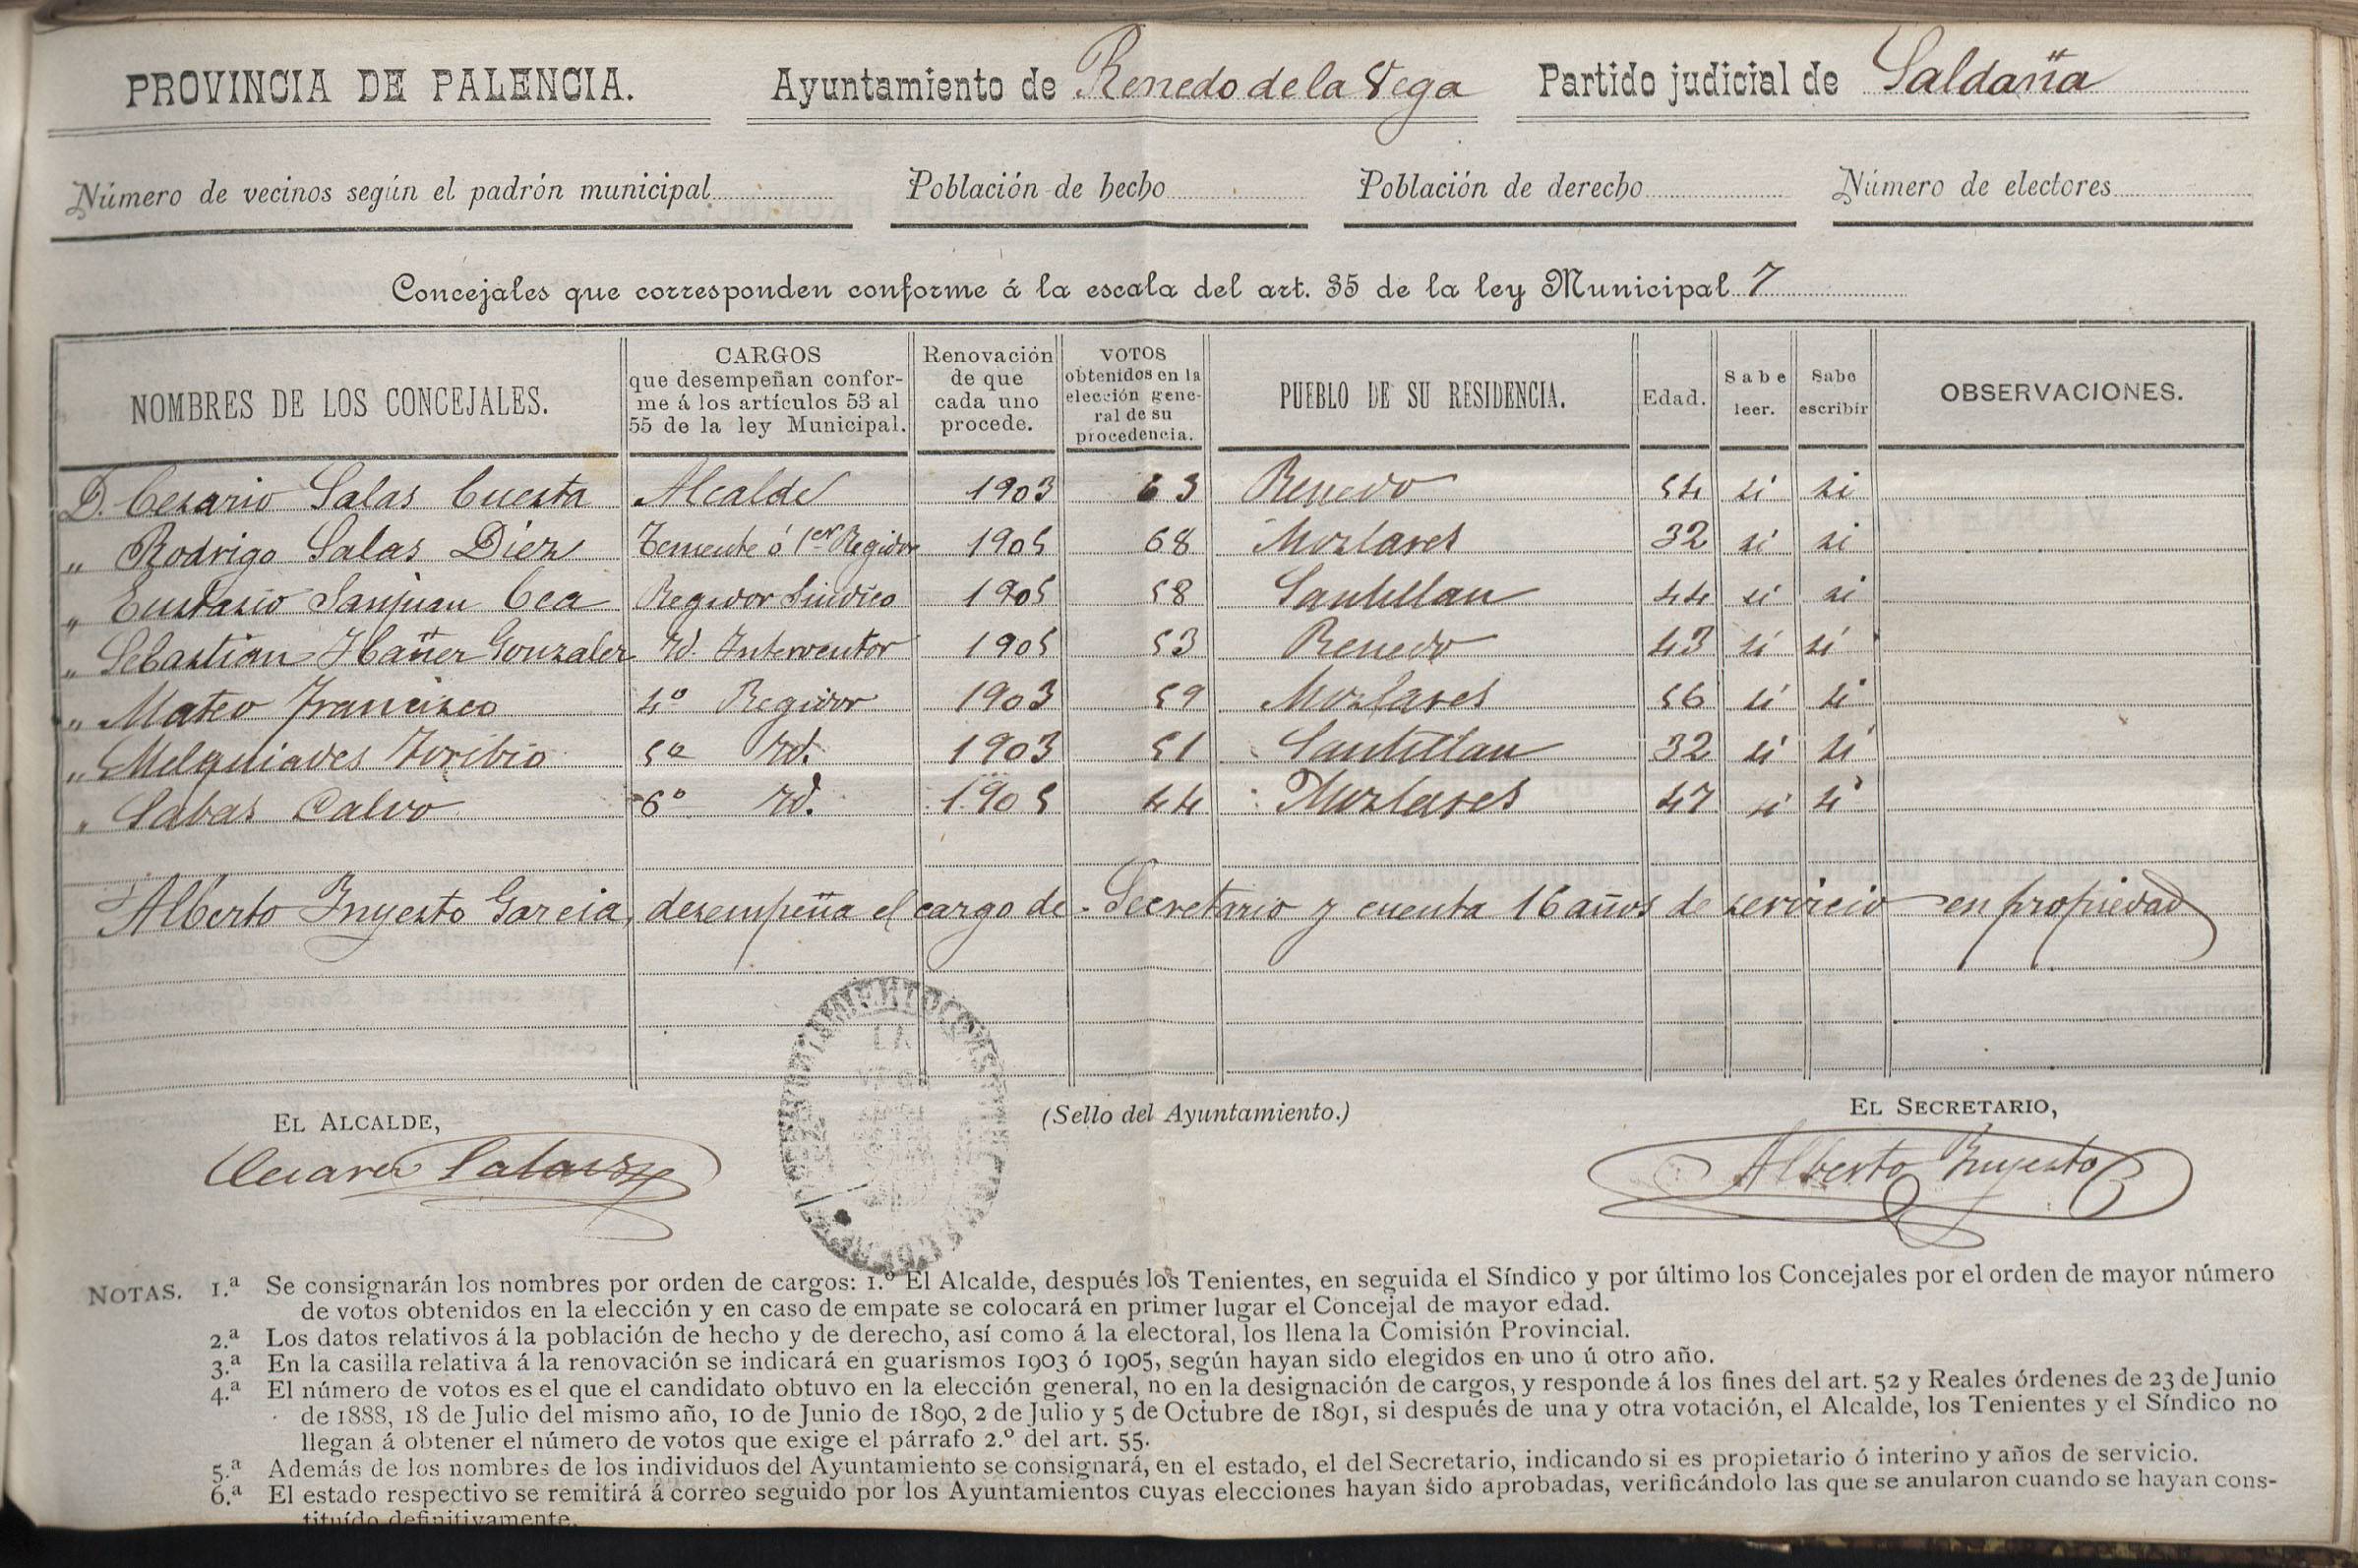 PROVINCIA DE PALENCIA. Ayuntamiento de Renedo de la Vega Partido judicial de Saldaña
Número de vecinos según el padrón municipal Población de hecho Población de derecho Número de electores
Concejales que corresponden conforme á la escala del art. 35 de la ley Municipal 7
NOMBRES DE LOS CONCEJALES. CARGOS que desempeñan conforme á los artículos 53 al 55 de la ley Municipal. Renovación de que cada uno procede. VOTOS obtenidos en la elección general de su procedencia. PUEBLO DE SU RESIDENCIA. Edad. Sabe leer. Sabe escribir OBSERVACIONES.
D. Cesario Salas Cuesta Alcalde 1903 63 Renedo 54 si si
„ Rodrigo Salas Diez Teniente ó 1er Regidor 1905 68 Moslares 32 si si
„ Eustasio Sanjuan Cea Regidor Sindico 1905 58 Santillan 44 si si
„ Sebastian Ibañez Gonzalez Id. Interventor 1905 53 Renedo 43 si si
„ Mateo Francisco 4º Regidor 1903 59 Moslares 56 si si
„ Melquiades Toribio 5º Id. 1903 51 Santillan 32 si si
„ Sabas Calvo 6º Id. 1905 44 Moslares 47 si si
Alberto Inyesto Garcia, desempeña el cargo de Secretario y cuenta 16 años de servicio en propiedad
LA
EL ALCALDE, (Sello del Ayuntamiento.) EL SECRETARIO,
Cesareo Salas Alberto Inyesto
NOTAS. 1.ª Se consignarán los nombres por orden de cargos: 1.º El Alcalde, después los Tenientes, en seguida el Síndico y por último los Concejales por el orden de mayor número
de votos obtenidos en la elección y en caso de empate se colocará en primer lugar el Concejal de mayor edad.
2.ª Los datos relativos á la población de hecho y de derecho, así como á la electoral, los llena la Comisión Provincial.
3.ª En la casilla relativa á la renovación se indicará en guarismos 1903 ó 1905, según hayan sido elegidos en uno ú otro año.
4.ª El número de votos es el que el candidato obtuvo en la elección general, no en la designación de cargos, y responde á los fines del art. 52 y Reales órdenes de 23 de Junio
de 1888, 18 de Julio del mismo año, 10 de Junio de 1890, 2 de Julio y 5 de Octubre de 1891, si después de una y otra votación, el Alcalde, los Tenientes y el Síndico no
llegan á obtener el número de votos que exige el párrafo 2.º del art. 55.
5.ª Además de los nombres de los individuos del Ayuntamiento se consignará, en el estado, el del Secretario, indicando si es propietario ó interino y años de servicio.
6.ª El estado respectivo se remitirá á correo seguido por los Ayuntamientos cuyas elecciones hayan sido aprobadas, verificándolo las que se anularon cuando se hayan cons-
tituído definitivamente.